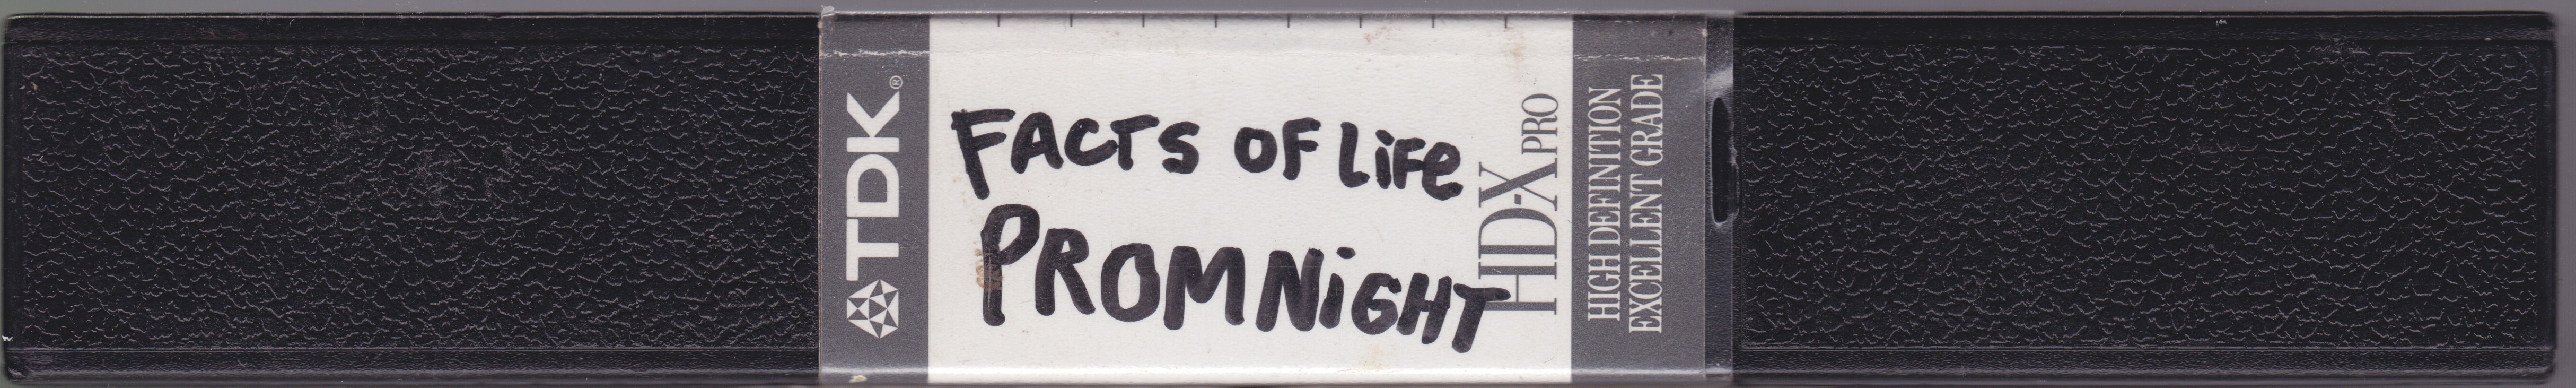 TDK®
FACTS OF LiFe
PROM NiGHT
HD-X PRO
HIGH DEFINITION
EXCELLENT GRADE